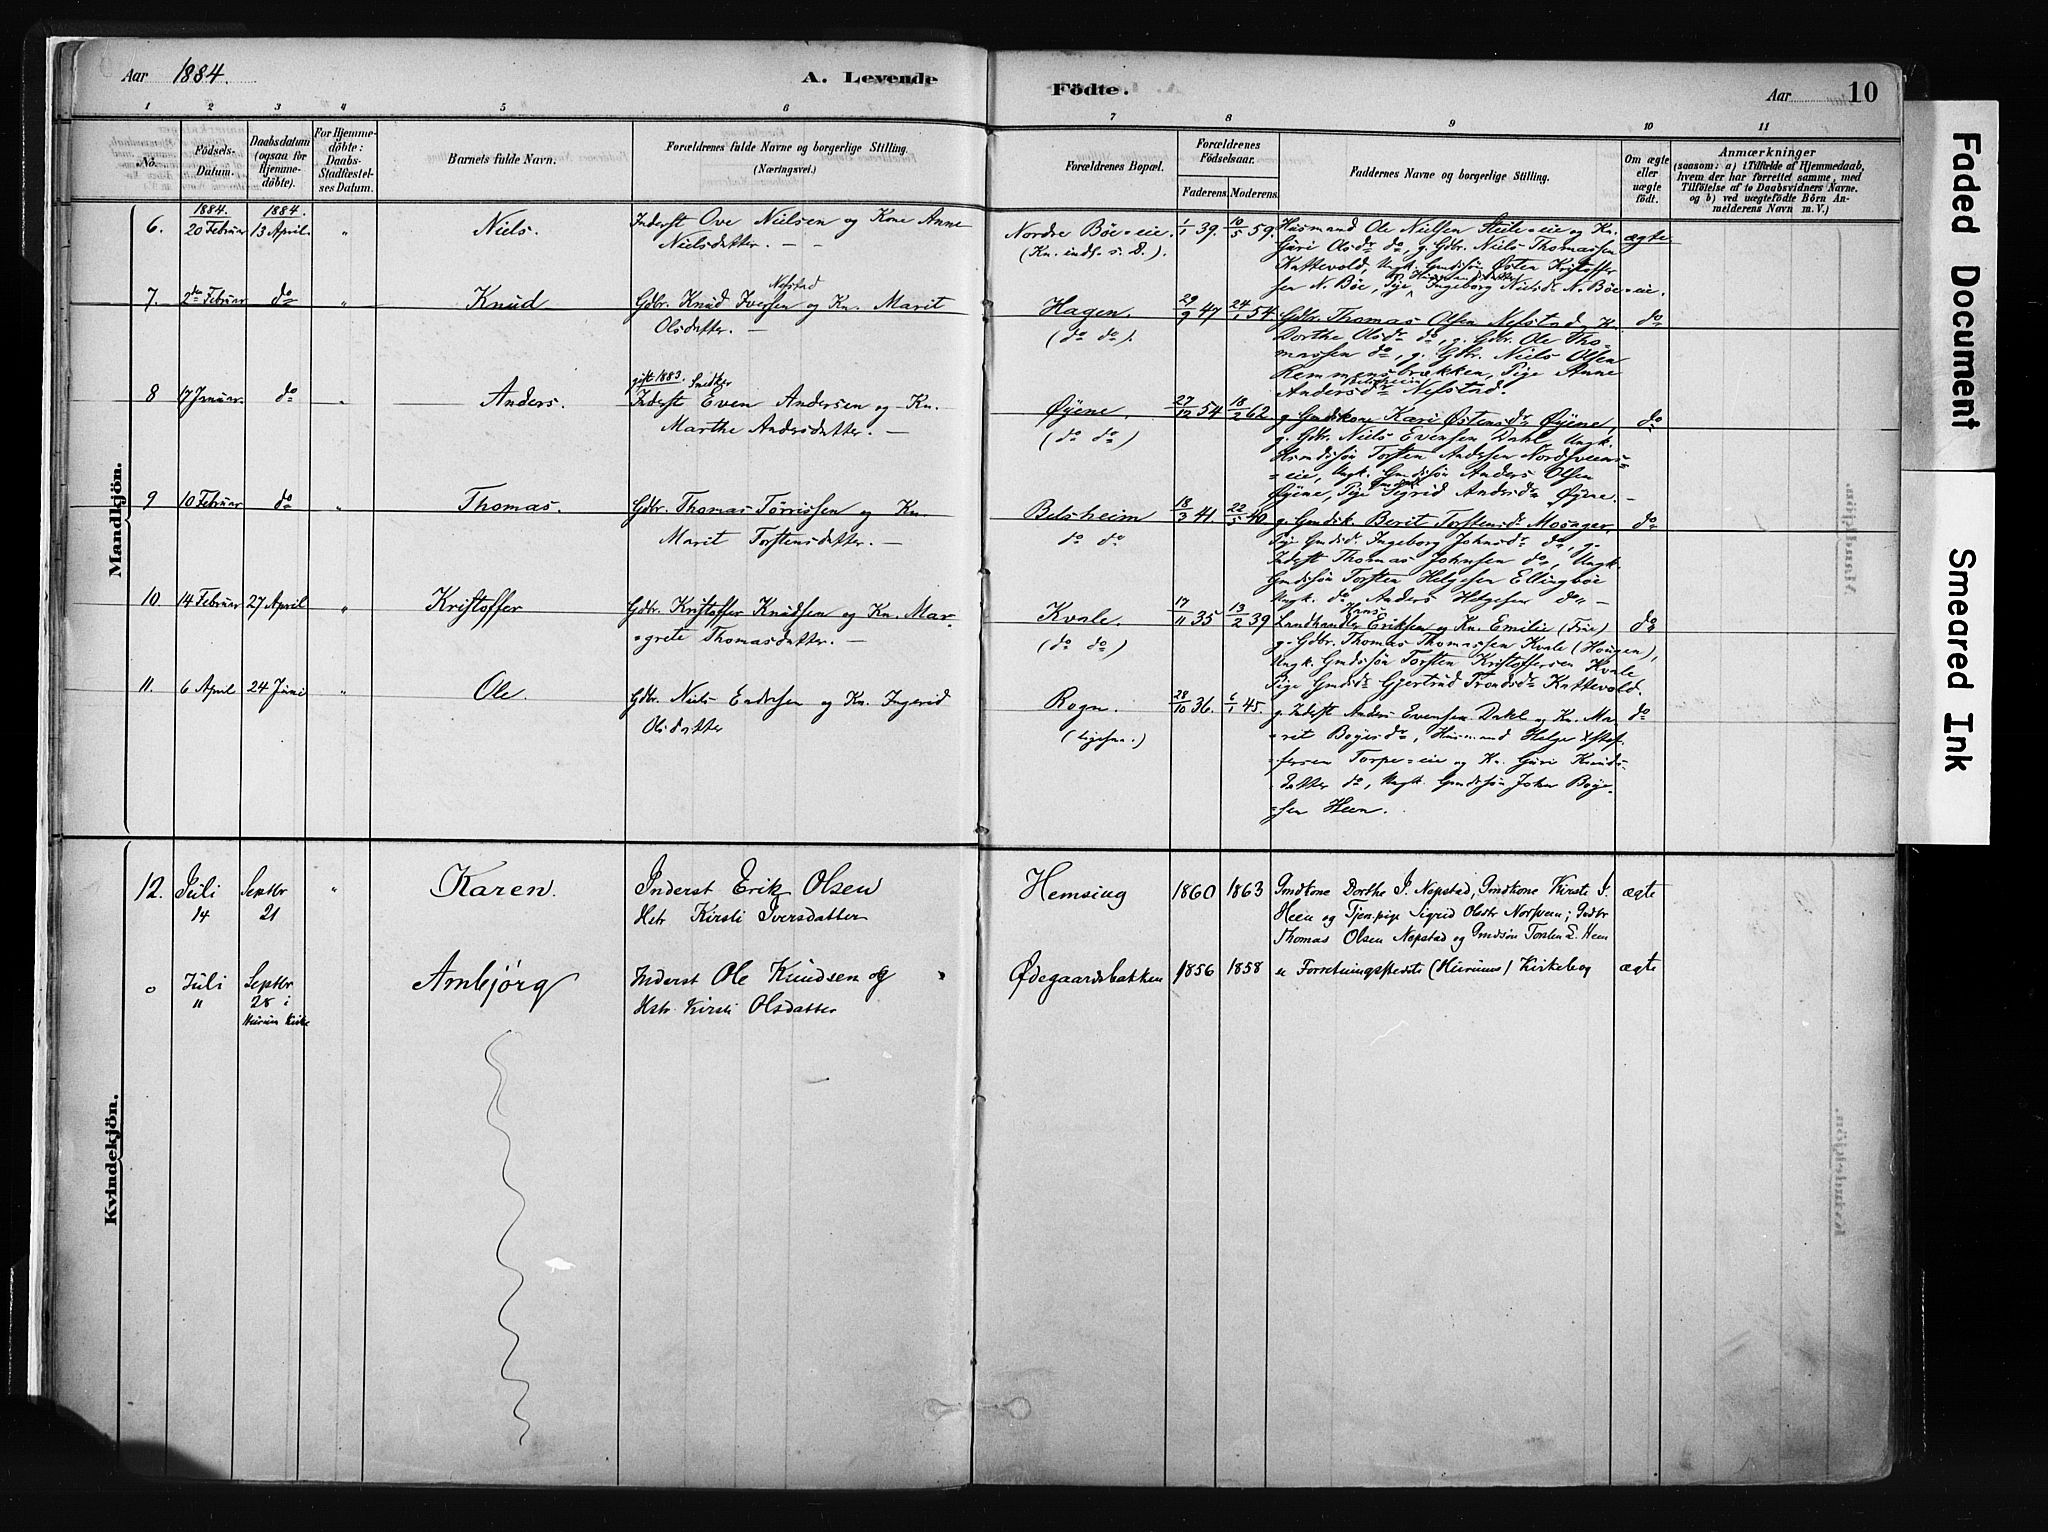 Aar 1884.
A. Levende
Födte.
Aar
10
1 2 3 4 5 6 7 8 9 10 11
No.
Födsels-
Datum.
Daabsdatum
(ogsaa for
Hjemme-
döbte).
For Hjemme-
döbte:
Daabs-
Stadfæstel-
ses Datum.
Barnets fulde Navn.
Forældrenes fulde Navne og borgerlige Stilling.
(Næringsvei.)
Forældrenes Bopæl.
Forældrenes
Födselsaar.
Faderens. Moderens.
Faddernes Navne og borgerlige Stilling.
Om ægte
eller
uægte
födt.
Anmærkninger
(saasom: a) i Tilfælde af Hjemmedaab,
hvem der har forrettet samme, med
Tilföielse af to Daabsvidners Navne.
og b) ved uægtefödte Börn An-
melderens Navn m. V.)
Mandkjön.
1884. 1884.
6. 20 Februar 13 April. " Niels. Inderst Ove Nielsen og Kone Anne
Nielsdatter. — —
Nordre Böe=eie.
(Kn. indf. s. D.).
1/1 39. 10/5 59.
Husmand Ole Nielsen Steile=eie og Kn.
Guri Olsdr do, g. Gdbr. Niels Thomassen
Kattevold, Ungk. Gmdssön Østen Kristoffer
sen N. Böe, Pige Ingeborg Nielsdr N. Böe=eie.
ægte
7. 2den Februar do " Knud Gdbr. Knud Iversen Nefstad og Kn. Marit
Olsdatter. —
Hagen.
(do do).
29/9 47 24/1 54
Gdbr. Thomas Olsen Nefstad, Kn.
Dorthe Olsdr do, g. Gdbr. Ole Tho-
massen do, g. Gdbr. Niels Olsen
Remmensbrækken, Pige Anne
Andersdr Nefstad.
do
8 17 Januar. do " Anders. gift 1883. Smedkjær
Inderst Even Andersen og Kn.
Marthe Andersdatter. —
Øyene.
(do do)
27/12 54 18/2 62
g. Gmdskone Kari Østensdr Øyene,
g. Gdbr. Niels Evensen Dahl, Ungk.
Hsmdssön Torsten Andersen Nordsveens=
=eie, Ungk. Gmdssön Anders Olsen
Øyene, Pige Sigrid Andersdr Øyene. —
do
9 10 Februar do " Thomas. Gdbr. Thomas Törrissen og Kn.
Marit Torstensdatter. —
Belsheim
do do
18/3 41. 22/5 40.
g. Gmdsk. Berit Torstensdr Mosager,
Pige Gmdsdr. Ingeborg Johnsdr do, g.
Inderst Thomas Johnsen do, Ungk.
Gmdssön Torsten Helgesen Ellingböe
Ungk. do Anders Helgesen do —
do
10 14 Februar 27 April " Kristoffer Gdbr. Kristoffer Knudsen og Kn. Mar-
=grete Thomasdatter. —
Kvale.
(do do)
17/11 35 13/2 39
Landhandler Hans Eriksen og Kn. Emilie (Frue)
g. Gdbr. Thomas Thomassen Kvale (Hougen),
Ungk. Gmdssön Torsten Kristoffersen Kvale
Pige Gmdsdr Gjertrud Trondsdr Kattevold.
do
11. 6 April 24 Juni " Ole. Gdbr. Niels Endresen og Kn. Ingerid
Olsdatter
Rogn.
(ligesaa.)
28/10 36. 6/1 45.
g. Inderst Anders Evensen Dahl og Kn. Ma-
=rit Boyesdr, Husmand Helge Xstof-
fersen Torpe=eie og Kn. Guri Knuds-
datter do, Ungk. Gmdssön John Boye-
=sen Heen.
do
Kvindekjön.
12. Juli 14 Septbr 21 " Karen. Inderst Erik Olsen
Hstr Kirsti Iversdatter
Hemsing 1860 1863
Gmdkone Dorthe I. Nepstad, Gmdkone Kirsti I.
Heen og Tjen.pige Sigrid Olsdtr Norsveen; Gmdbr
Thomas Olsen Nepstad og Gmdsön Torsten E. Heen
ægte
0 Juli " Septbr 28 i Hurum Kirke Ambjörg Inderst Ole Knudsen og
Hstr Kirsti Olsdatter
Ødegaardsbakken 1856 1858
se Forretningsstedets (Hurums) Kirkebog
ægte
Faded Document
Smeared Ink